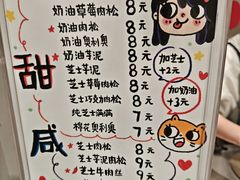 奶油草莓肉松 8元
奶油肉松 8元
奶油奥利奥 8元
奶油芋泥 8元
芝士芋泥 8元
芝士草莓肉松 8元
芝士巧克肉松 8元
纯芝士满满 7元
棉花奥利奥 7元
甜
加芝士
+2元
加奶油
+3元
咸
芝士肉松 8元
芝士芋泥肉松 9元
芝士牛肉丝 9元